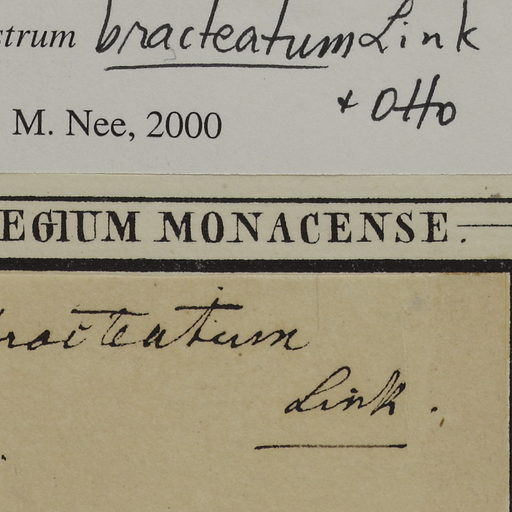 strum bracteatum Link
& Otto
M. Nee, 2000
EGIUM MONACENSE.
bracteatum
Link.